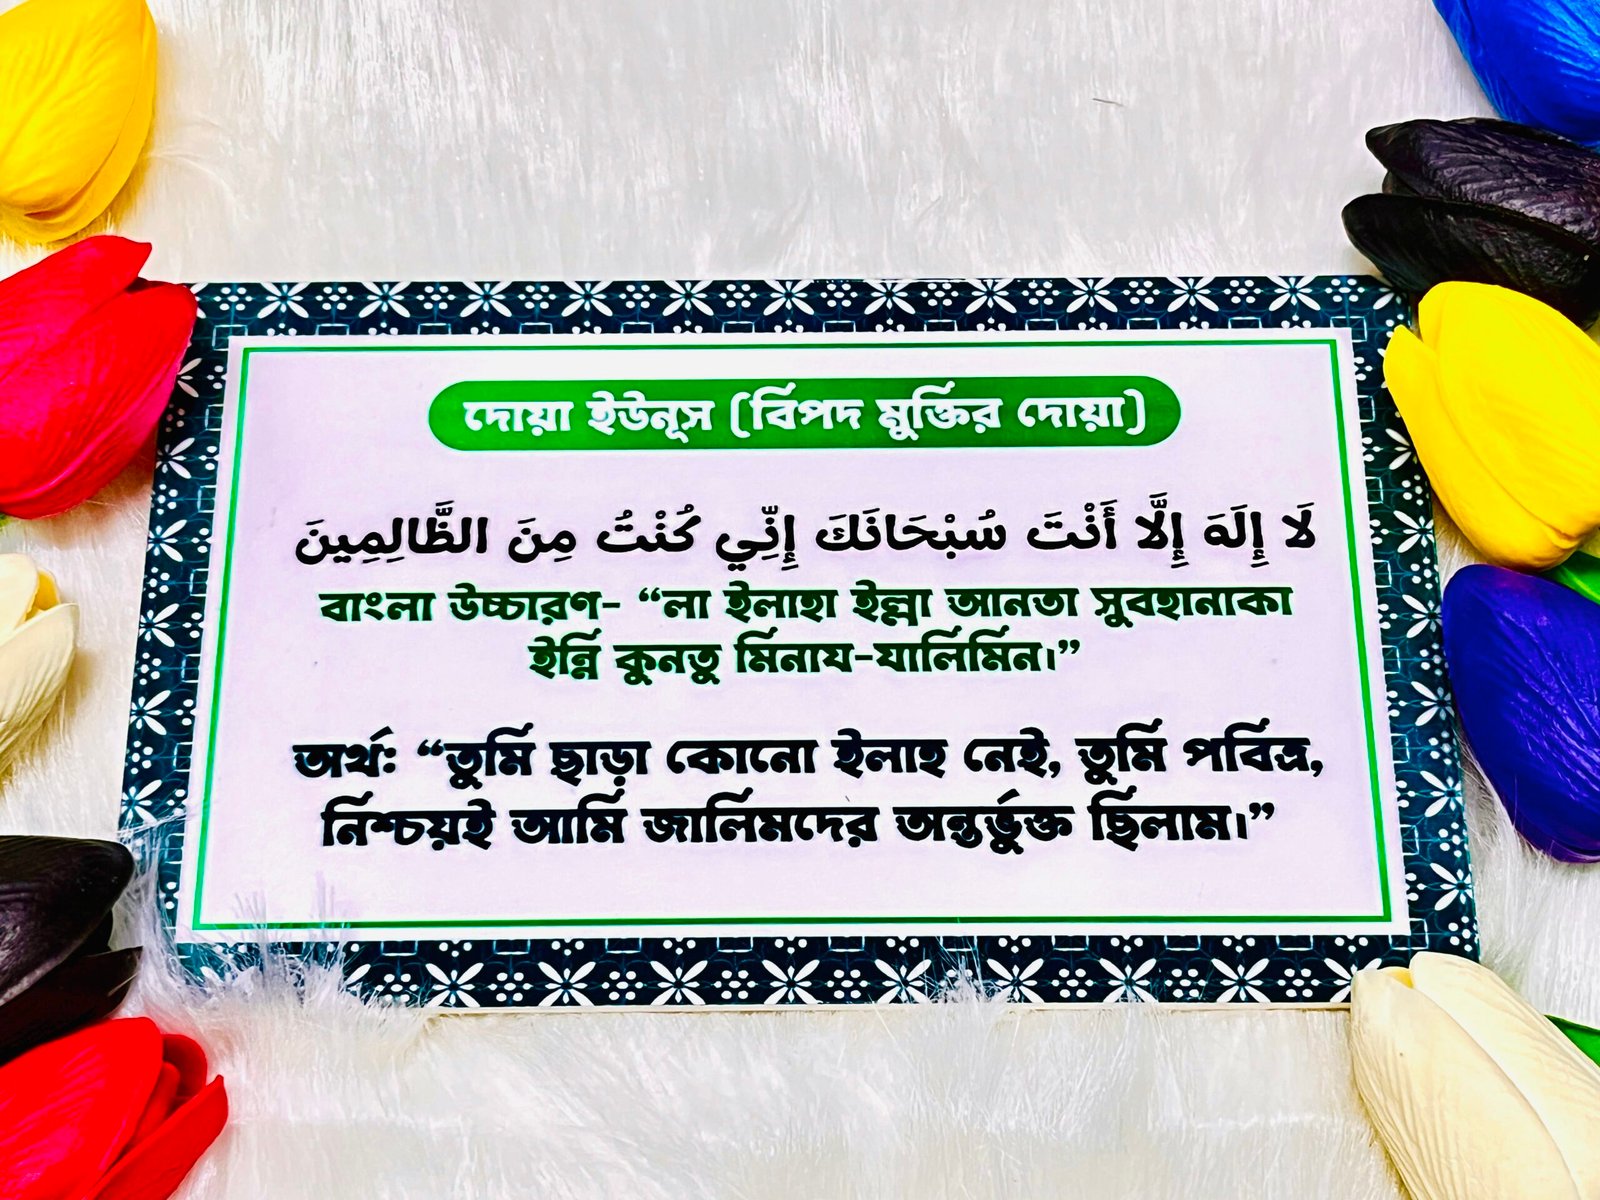 দোয়া ইউনূস (বিপদ মুক্তির দোয়া)
لَا إِلَهَ إِلَّا أَنْتَ سُبْحَانَكَ إِنِّي كُنْتُ مِنَ الظَّالِمِينَ
বাংলা উচ্চারণ- “লা ইলাহা ইল্লা আনতা সুবহানাকা
ইন্নি কুনতু মিনায-যালিমিন।”
অর্থ: “তুমি ছাড়া কোনো ইলাহ নেই, তুমি পবিত্র,
নিশ্চয়ই আমি জালিমদের অন্তর্ভুক্ত ছিলাম।”